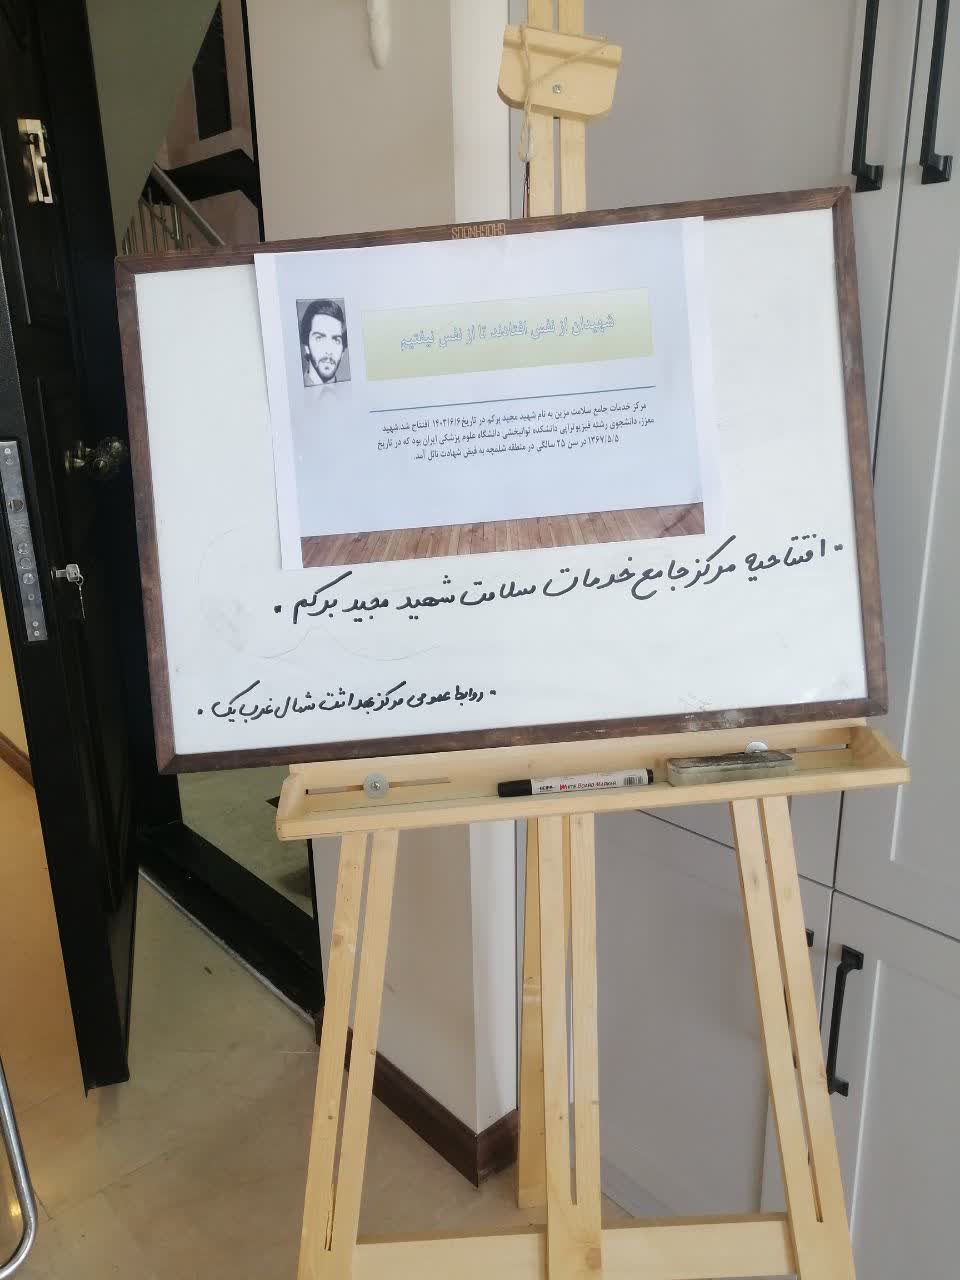 شهیدان از نفس افتادند تا از نفس نیفتیم
مرکز خدمات جامع سلامت مزین به نام شهید مجید برکم در تاریخ ۱۴۰۳/۶/۶ افتتاح شد.شهید
معزز، دانشجوی رشته فیزیوتراپی دانشکده توانبخشی دانشگاه علوم پزشکی ایران بود که در تاریخ
۱۳۶۷/۵/۵ در سن ۲۵ سالگی در منطقه شلمچه به فیض شهادت نائل آمد.
۰ افتتاحیه مرکز جامع خدمات سلامت شهید مجید برکم ۰
۰ روابط عمومی مرکز بهداشت شمال غرب یک ۰
WHITE BOARD MARKER